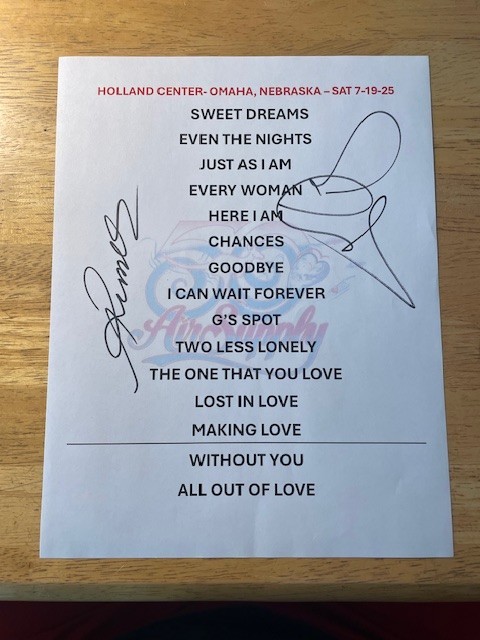 HOLLAND CENTER- OMAHA, NEBRASKA – SAT 7-19-25
SWEET DREAMS
EVEN THE NIGHTS
JUST AS I AM
EVERY WOMAN
HERE I AM
CHANCES
GOODBYE
I CAN WAIT FOREVER
G'S SPOT
Air Supply
TWO LESS LONELY
THE ONE THAT YOU LOVE
LOST IN LOVE
MAKING LOVE
WITHOUT YOU
ALL OUT OF LOVE